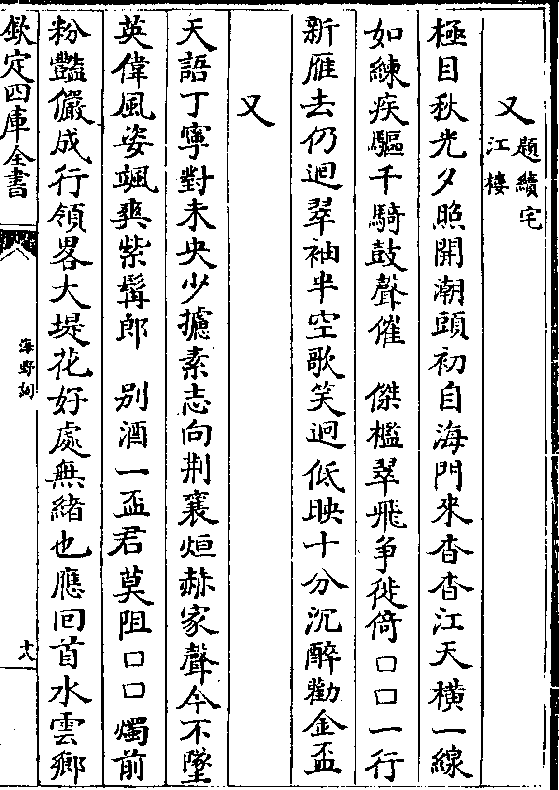 又題續宅江樓
極目秋光夕照開潮頭初自海門來杳杳江天橫一線
如練疾驅千騎鼓聲催　傑檻翠飛争徙倚口口一行
新雁去仍迴翠袖半空歌笑迥低映十分沉醉勸金盃
又
天語丁寧對未央少攄素志向荆襄烜赫家聲今不墜
英偉風姿颯爽紫髯郎　别酒一盃君莫阻口口燭前
粉豔儼成行領畧大堤花好處無緒也應回首水雲鄉
欽定四庫全書
海野詞
十八